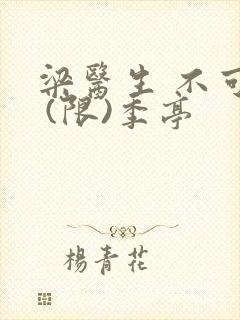 梁醫生不可
(限)季亭
楊青花